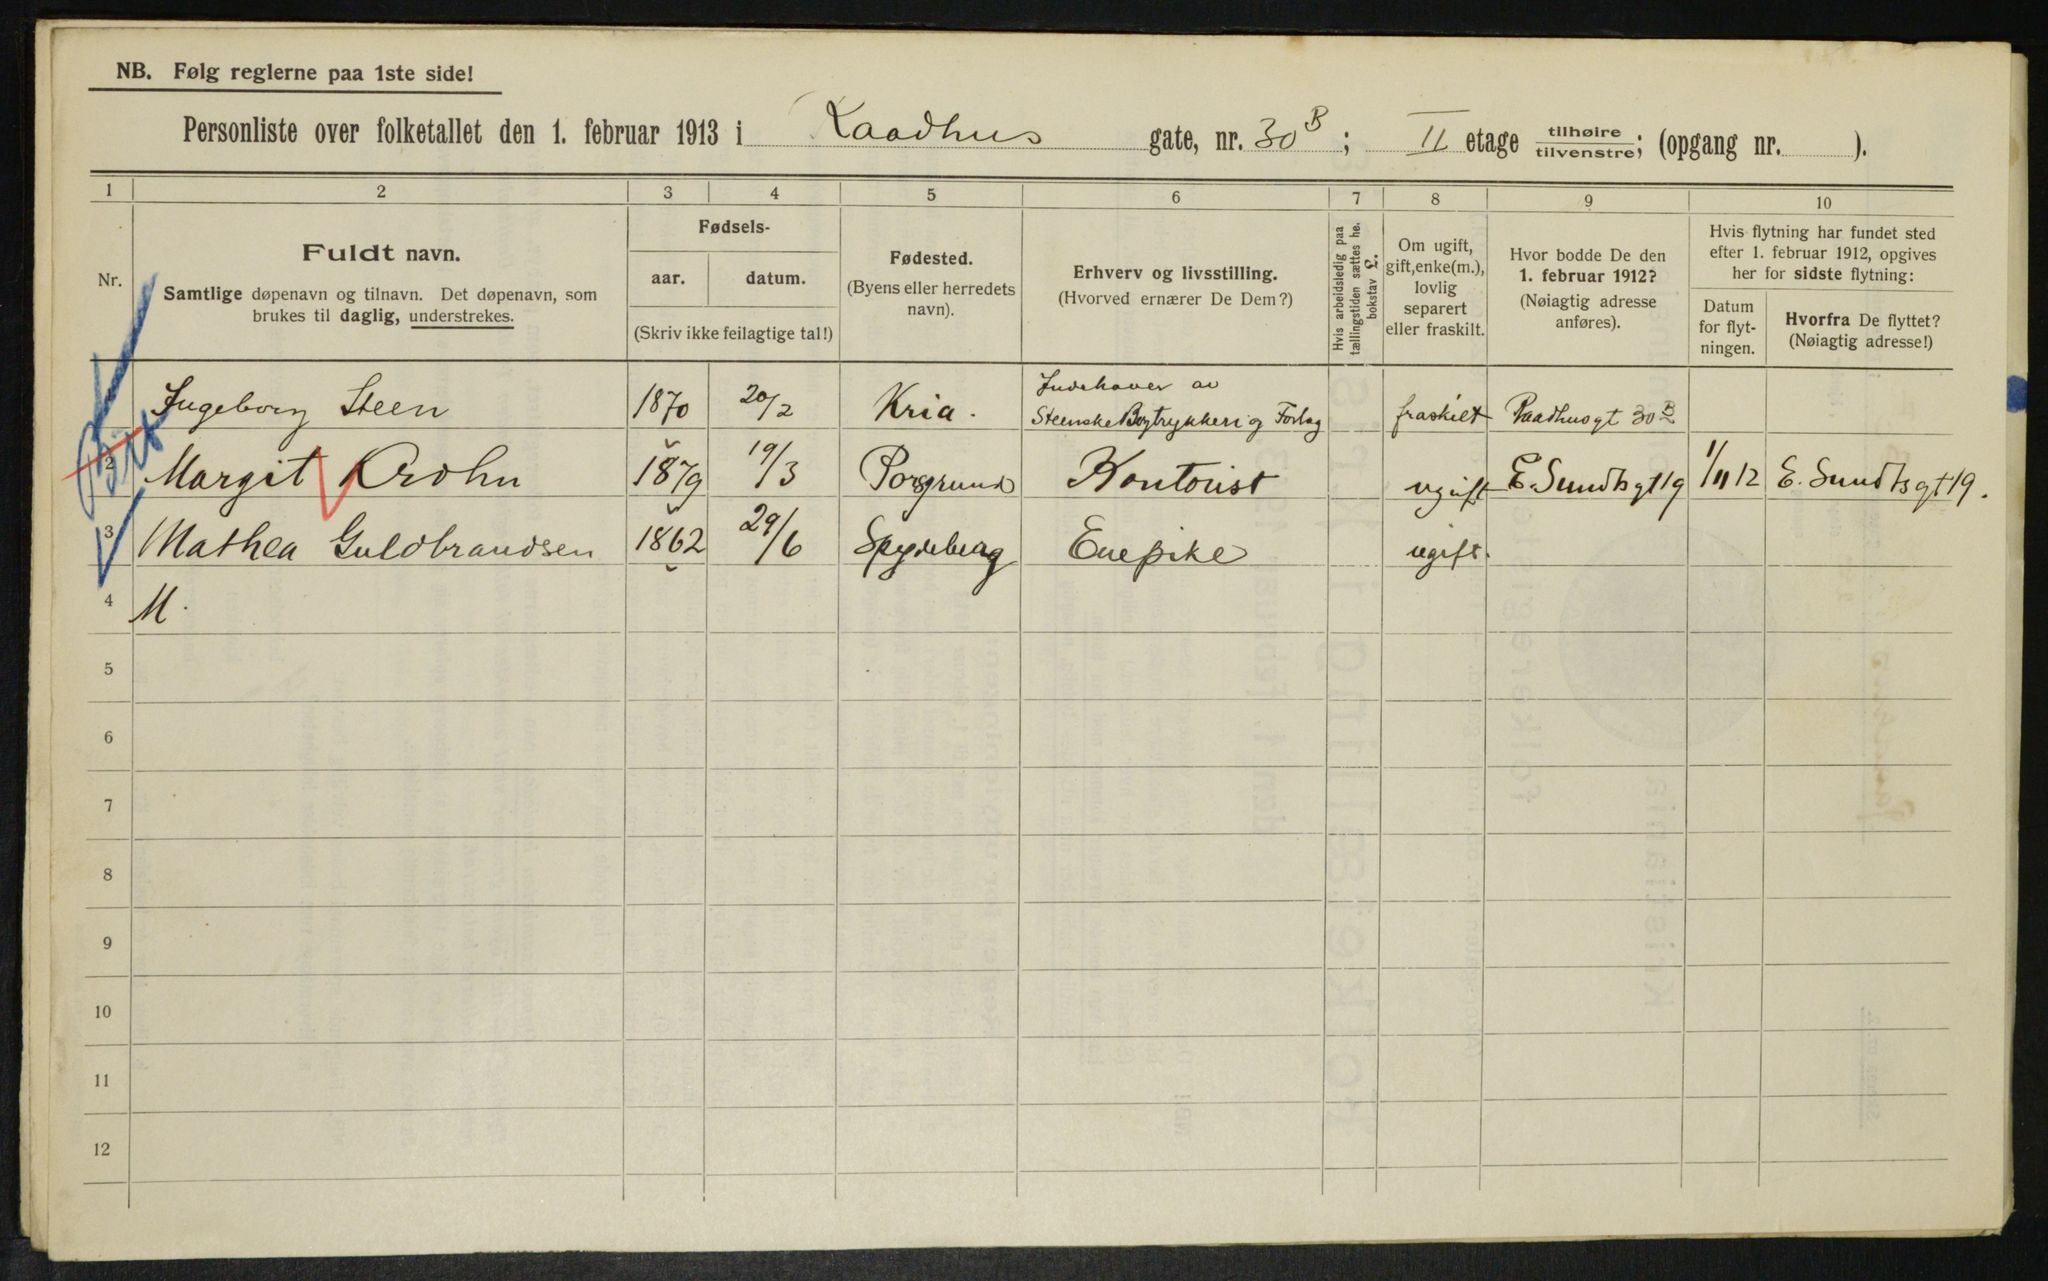 NB. Følg reglerne paa 1ste side!
Personliste over folketallet den 1. februar 1913 i Raadhus gate, nr. 30 B; II etage tilhøire/tilvenstre; (opgang nr. ).
1 2 3 4 5 6 7 8 9 10
Nr.
Fuldt navn.
Samtlige døpenavn og tilnavn. Det døpenavn, som
brukes til daglig, understrekes.
Fødsels-
aar. datum.
(Skriv ikke feilagtige tal!)
Fødested.
(Byens eller herredets
navn).
Erhverv og livsstilling.
(Hvorved ernærer De Dem?)
Hvis arbeidsledig paa
tællingstiden sættes he.
bokstav L.
Om ugift,
gift, enke(m.),
lovlig
separert
eller fraskilt.
Hvor bodde De den
1. februar 1912?
(Nøiagtig adresse
anføres).
Hvis flytning har fundet sted
efter 1. februar 1912, opgives
her for sidste flytning:
Datum
for flyt-
ningen.
Hvorfra De flyttet?
(Nøiagtig adresse!)
Ingeborg Steen 1870 20/2 Kria. Indehaver av
Steenske Bogtrykkeri og Forlag fraskilt Raadhusgt 30 B
2 Margit Krohn 1879 19/3 Porsgrund Kontorist ugift E. Sundtsgt 19 1/11 12 E. Sundtsgt 19.
3 Mathea Guldbrandsen 1862 29/6 Spydeberg Enepike ugift.
4 M.
5
6
7
8
9
10
11
12